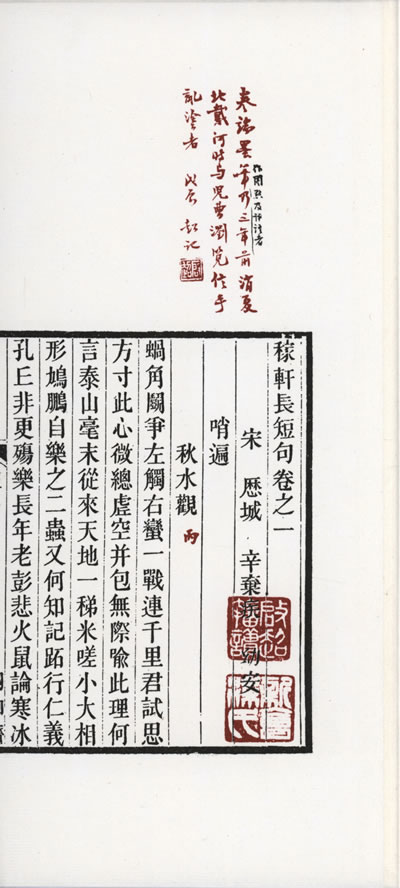 卷端墨筆乃三年前消夏
北戴河時与兒曹瀏覽信手
亂塗者 戊辰 超記
稼軒長短句卷之一
宋 歷城 辛棄疾 幼安
啟超
新會梁氏
哨遍
秋水觀 丙
蝸角鬭爭左觸右蠻一戰連千里君試思
方寸此心微總虛空并包無際喻此理何
言泰山毫末從來天地一稊米嗟小大相
形鳩鵬自樂之二蟲又何知記跖行仁義
孔丘非更殤樂長年老彭悲火鼠論寒冰